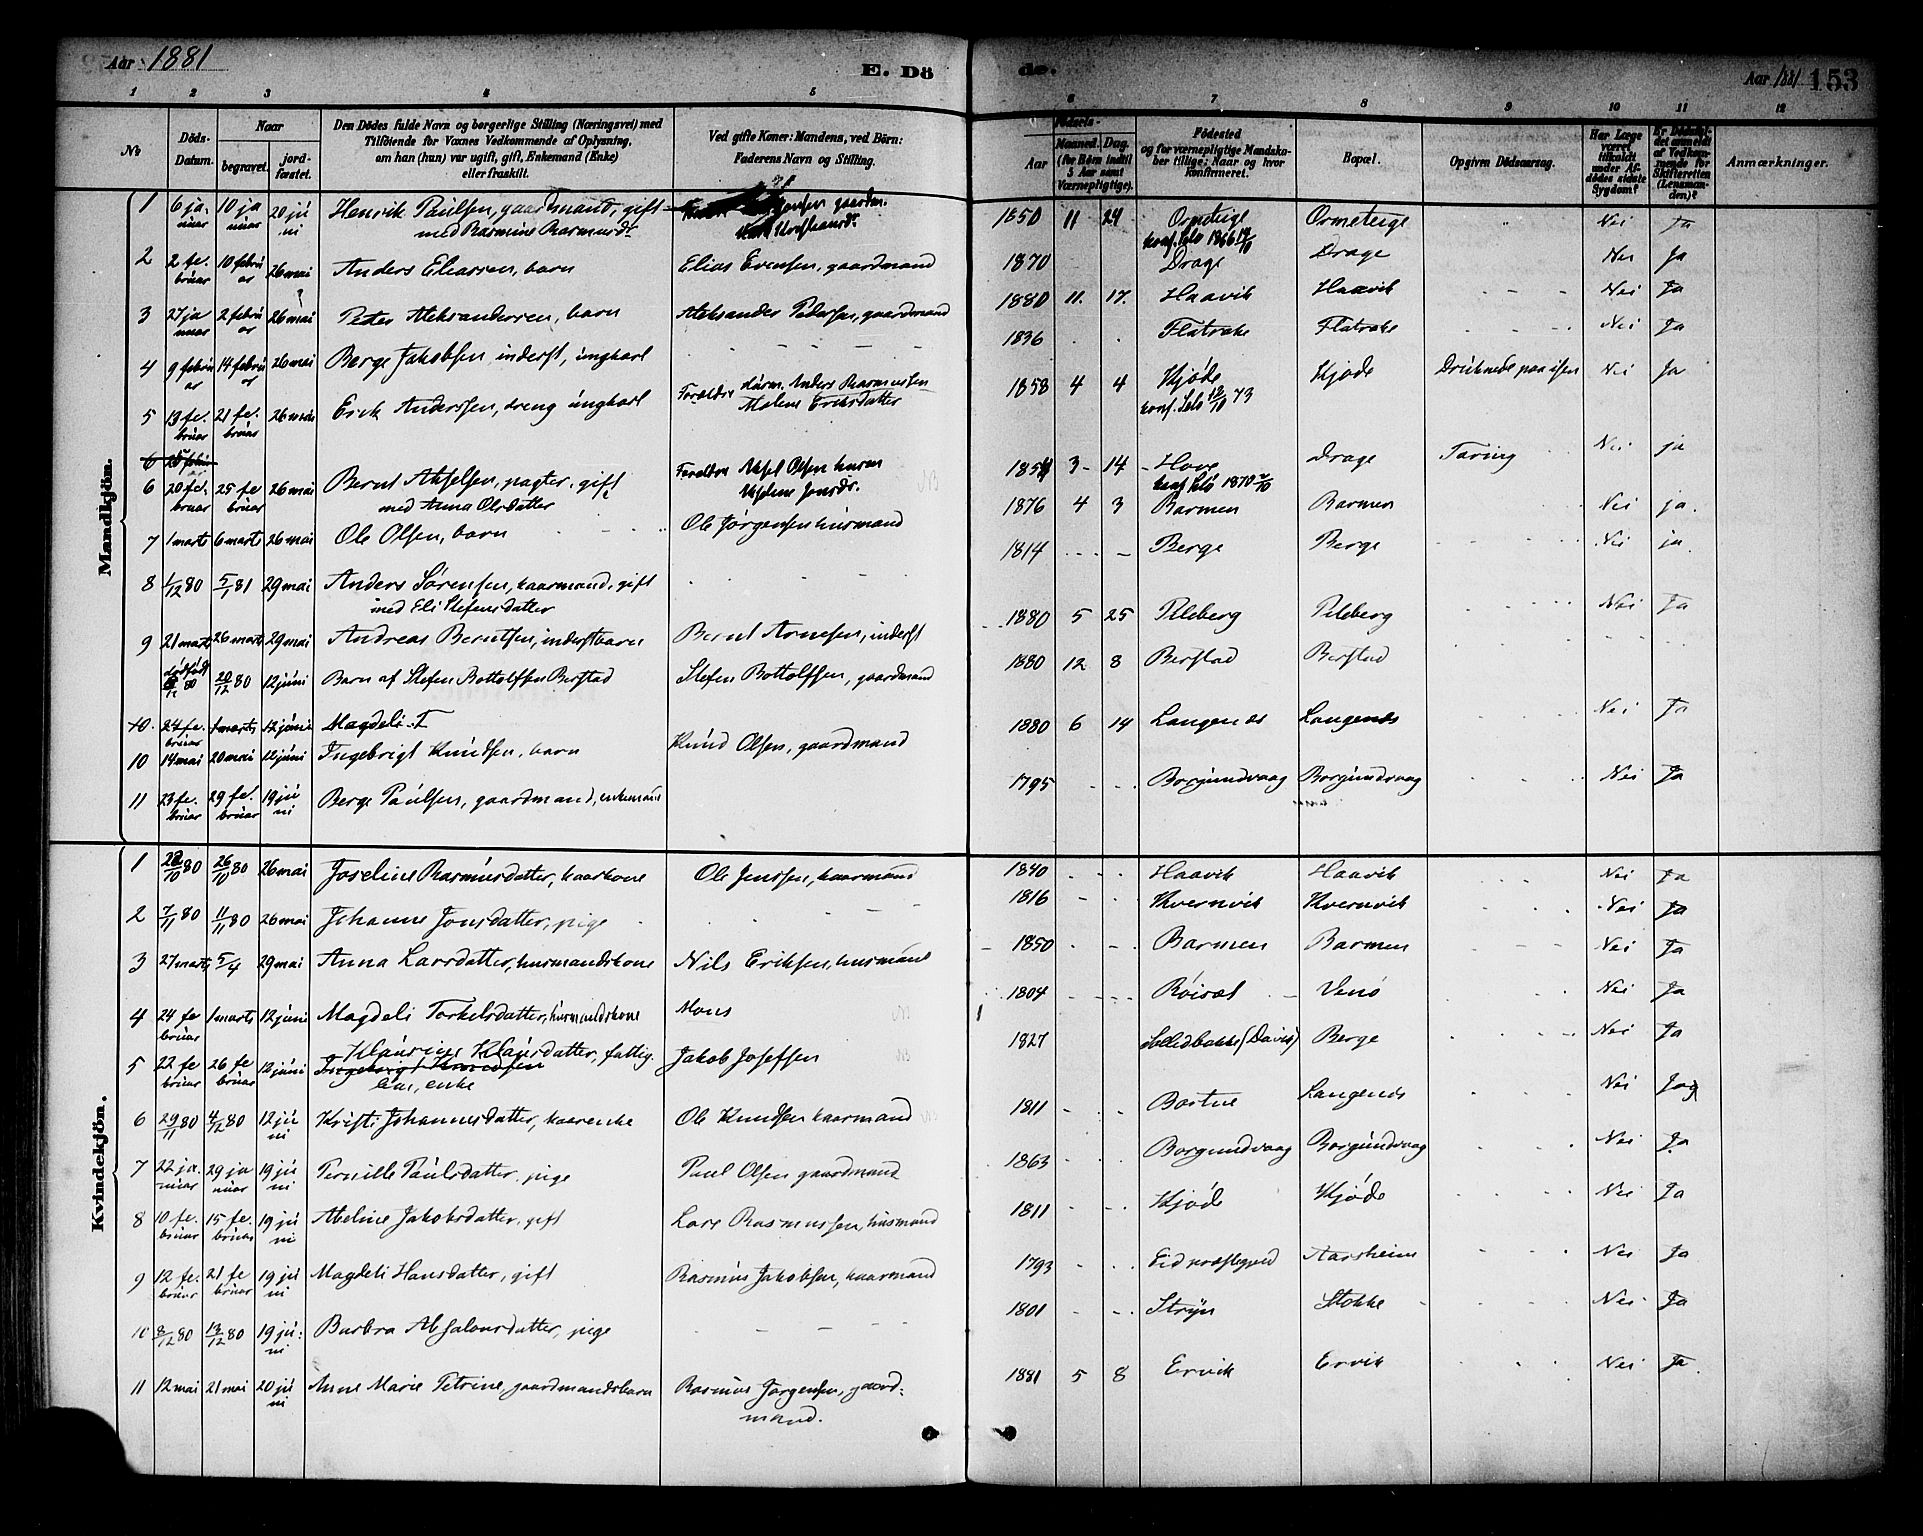 Aar 1881
E. Dö
de.
Aar 1881
153
1 2 3 4 5
6 7 8 9 10 11 12
No
Döds-Datum.
Naar
begravet.
jord-fæstet.
Den Dödes fulde Navn og borgerlige Stilling (Næringsvei) med
Tilföiende for Voxnes Vedkommende af Oplysning,
om han (hun) var ugift, gift, Enkemand (Enke)
eller fraskilt.
Ved gifte Koner: Mandens, ved Börn:
Faderens Navn og Stilling.
Födsels-
Aar
Maaned. Dag.
(for Börn indtil
5 Aar samt
Værnepligtige).
Födested
og for værnepligtige Mandskaber tillige: Naar og hvor
konfirmeret.
Bopæl.
Opgiven Dödsaarsag.
Har Læge
været
tilkaldt
under Afdödes sidste
Sygdom?
Er Dödsfaldet anmeldt
af Vedkommende for
Skifteretten
(Lensmanden)?
Anmærkninger.
Mandkjön.
1 6 januar 10 januar 20 juni Henrik Paulsen, gaardmand, gift
med Rasmine Rasmusdr
1850 11 24 Ormeteige Ormeteige Nei Ja
konf. Selø 1866
2 2 februar 10 februar 26 mai Anders Eliassen, barn Elias Evensen, gaardmand 1870 Drage Drage Nei Ja
3 27 januar 2 februar 26 mai Peter Aleksandersen, barn Aleksander Pedersen, gaardmand 1880 11. 17. Haavik Haavik Nei Ja
4 9 februar 14 februar 26 mai Berge Jakobsen, inderst, ungkarl 1836 Flatrake Flatrake Nei Ja
5 13 februar 21 februar 26 mai Erik Anderssen, dreng ungkarl Forældre Husm. Anders Rasmussen
Malene Eriksdatter
1858 4 4 Kjøde Kjøde Druknede paa isen Nei Ja
konf. Selø 12/10 73
6 20 februar 25 februar 26 mai Bernt Akselsen, pagter, gift
med Anna Olsdatter
Forældre Aksel Olsen husm
Akseline Jonsdr.
NB
1854 3 14 Hove Drage Tæring Nei ja
konf Selø 1870
7 1 marts 6 marts 26 mai Ole Olsen, barn Ole Jørgensen husmand 1876 4 3 Barmen Barmen Nei ja.
8 1/12 80 5/1 81 29 mai Anders Sørensen, kaarmand, gift
med Eli Stefensdatter
1814 Berge Berge Nei ja.
9 21 marts 26 marts 29 mai Andreas Berntsen, inderstbarn Bernt Arnesen, inderst 1880 5 25 Peleberg Peleberg Nei Ja
dødfødt 80 20/12 80 12 juni Barn af Stefen Bottolfsen Berstad Stefen Bottolfsen, gaardmand 1880 12 8 Berstad Berstad
10. 24 februar 1 marts 12 juni Magdeli T
10 14 mai 20 mai 12 juni Ingebrigt Knudsen, barn Knud Olsen, gaardmand 1880 6 14 Langenæs Langenæs Nei Ja
11 23 februar 29 februar 19 juni Berge Paulsen, gaardmand, enkemand 1795 Borgundvaag Borgundvaag Nei Ja
Kvindekjön.
1 22/10 80 26/10 80 26 mai Joseline Rasmusdatter, kaarkone Ole Jenssen, kaarmand 1840 Haavik Haavik Nei Ja
2 7/11 80 11/11 80 26 mai Johanne Jonsdatter, pige 1816 Kvernvik Kvernvik Nei Ja
3 27 marts 5/4 29 mai Anna Larsdatter, husmandskone Nils Eriksen, husmand 1850 Barmen Barmen Nei Ja
4 24 februar 1 marts 12 juni Magdeli Torkelsdatter, husmandskone Mons NB 1804 Røiset Venø Nei Ja
5 22 februar 26 februar 12 juni Klausine Klausdatter, fattig.
Ingeborgt Knudsen
lem, enke
Jakob Josefsen NB 1827 (Davik) Berge Nei Ja
6 29/11 80 4/12 80 12 juni Kristi Johannesdatter, kaarenke Ole Knudsen kaarmand NB 1811 Bortne Langenæs Nei Ja
7 22 januar 29 januar 19 juni Pernille Paulsdatter, pige Paul Olsen gaardmand 1863 Borgundvaag Borgundvaag Nei Ja
8 10 februar 15 februar 19 juni Abeline Jakobsdatter, gift Lars Rasmussen, husmand 1811 Kjøde Kjøde Nei Ja
9 12 februar 21 februar 19 juni Magdeli Hansdatter, gift Rasmus Jakobsen, kaarmand 1793 Eid præstegjeld Aarsheim Nei Ja
10 8/12 80 13/12 80 19 juni Barbra Absalonsdatter, pige 1801 Stryn Stokke Nei Ja
11 12 mai 21 mai 20 juni Anne Marie Petrine, gaardmandsbarn Rasmus Jørgensen, gaardmand. 1881 5 8 Ervik Ervik Nei Ja.